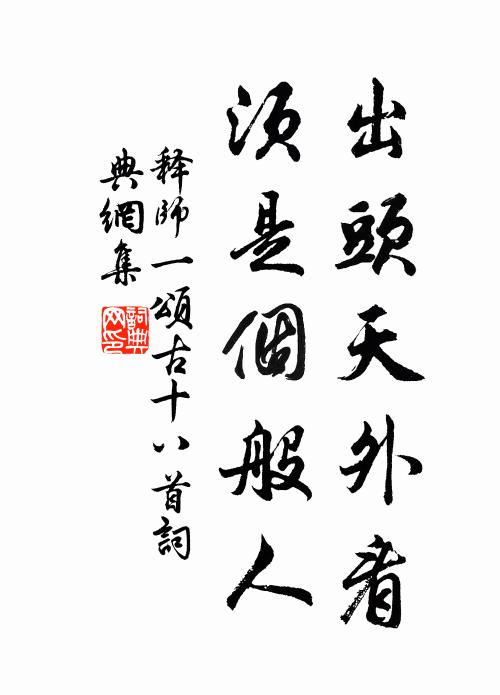 出頭天外看
須是個般人
释師一頌古十八首詞
典網集
詞典网印